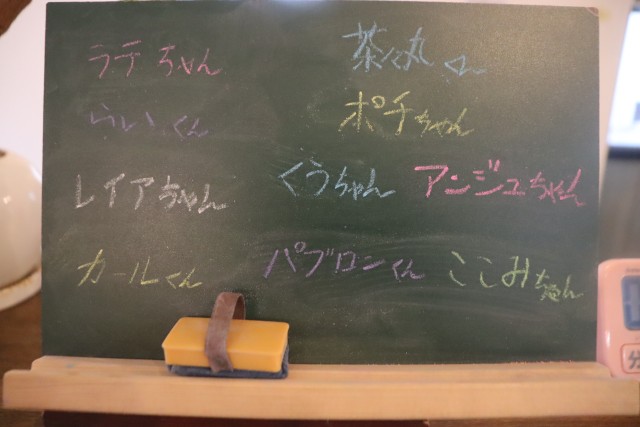 ラテちゃん 茶々丸くん
らいくん ポチちゃん
レイアちゃん くうちゃん アンジュちゃん
カールくん パブロンくん ここみちゃん
分